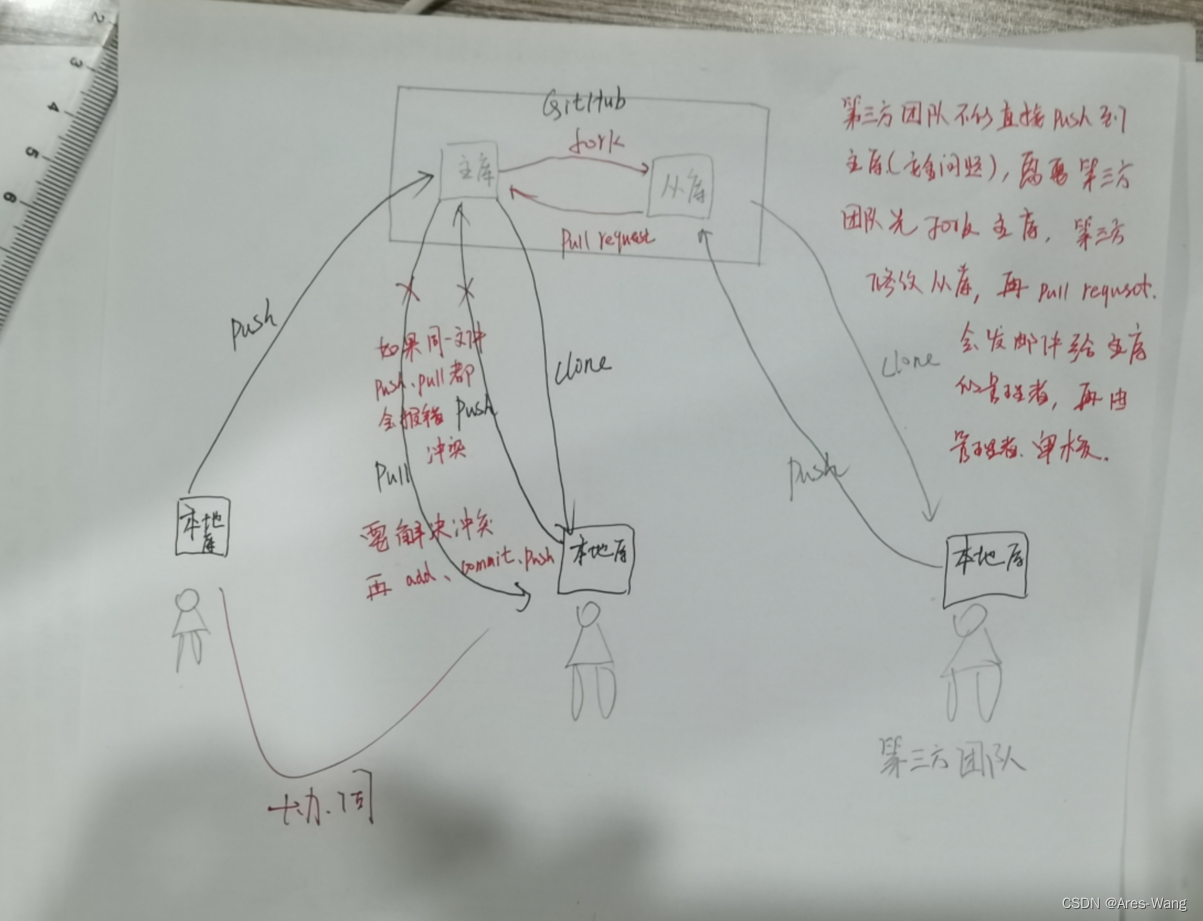 GitHub
fork
主库
从库
Pull request
第三方团队不能直接Push到
主库(安全问题), 需要第三方
团队先 fork 主库, 第三方
修改从库, 再 Pull requset.
会发邮件给主库
的管理者, 再由
管理者审核.
Push
如果同一文件
Push、Pull都
会报错
冲突
Push
Pull
clone
clone
Push
要解决冲突
再 add、commit、Push
本地库
本地库
本地库
协同
第三方团队
2
3
4
5
6
CSDN @Ares-Wang